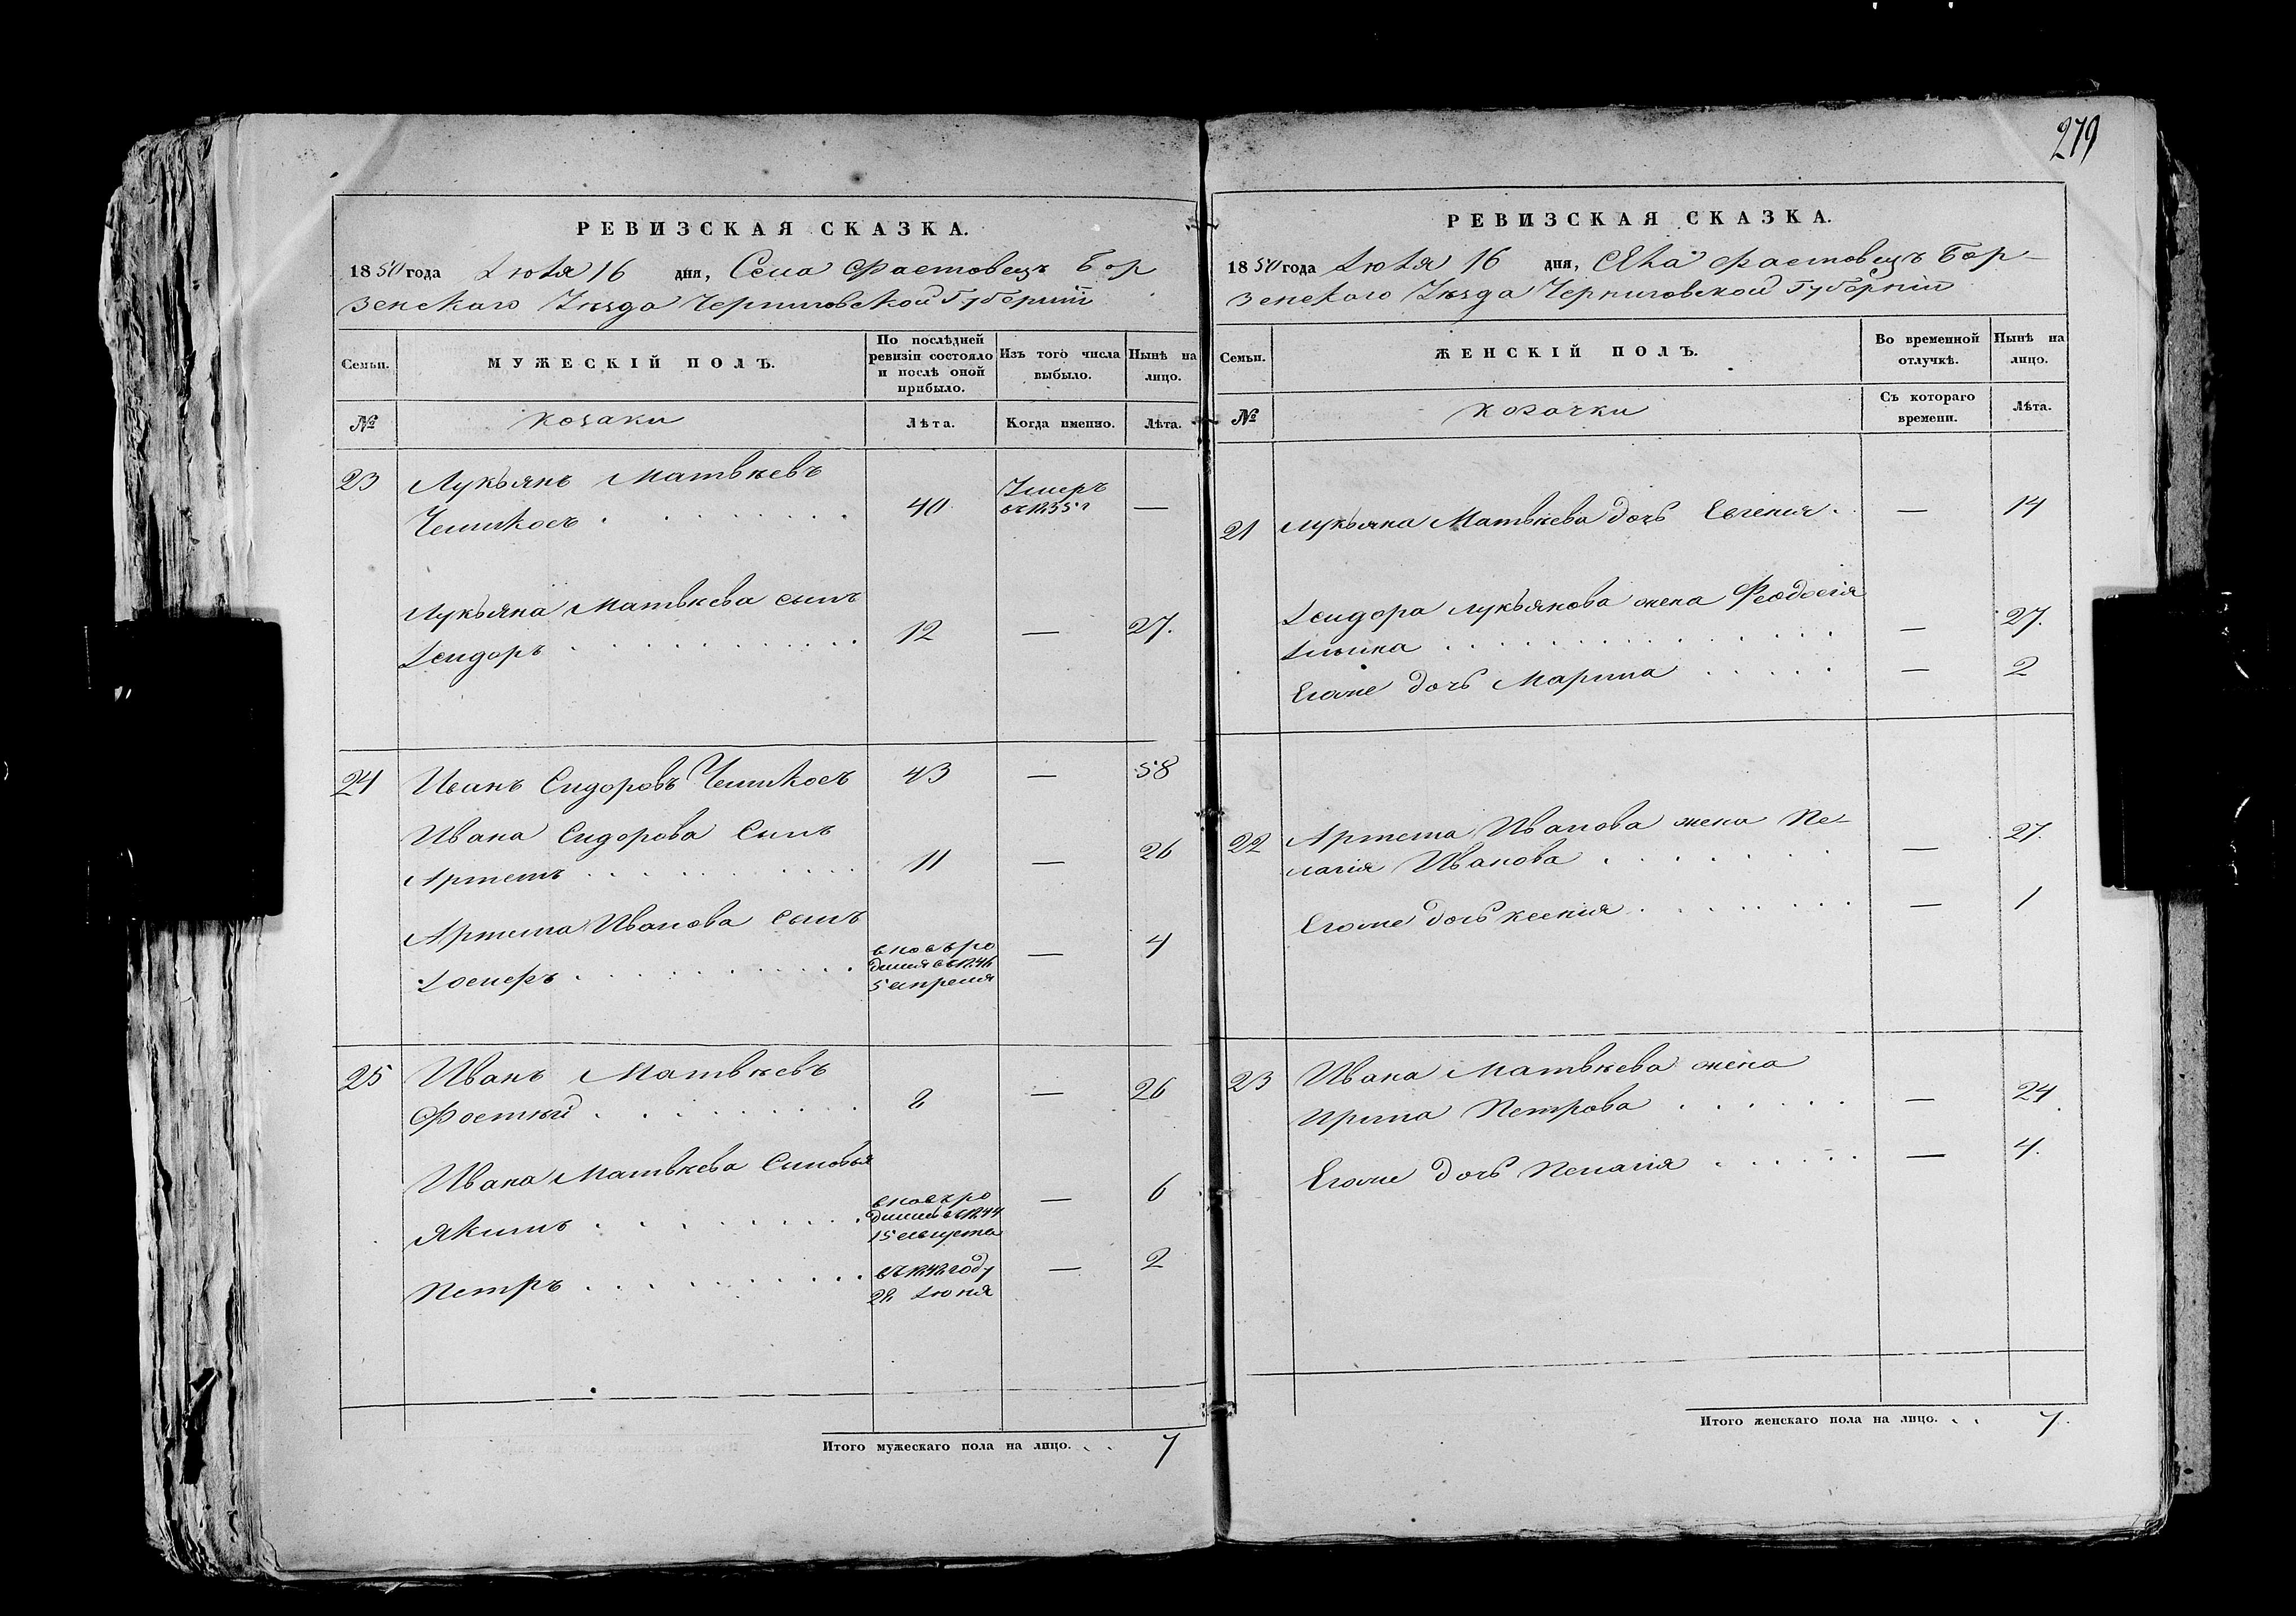 279
РЕВИЗСКАЯ СКАЗКА.
1850 года Іюля 16 дня, Села Фастовецъ Бор
зенскаго Уѣзда Черниговской Губерніи
Семьи.
МУЖЕСКІЙ ПОЛЪ.
По послѣдней
ревизіи состояло
и послѣ оной
прибыло.
Изъ того числа
выбыло.
Нынѣ на
лицо.
№
козаки
Лѣта.
Когда именно.
Лѣта.
23 Лукьянъ Матвѣевъ
Чешкосъ 40 Умеръ
въ 1835 г —
Лукьяна Матвѣева сынъ
Ісидоръ 12 — 27.
24 Иванъ Сидоровъ Чешкосъ 43 — 58
Ивана Сидорова Сынъ
Артемъ 11 — 26
Артема Ивановa сынъ
Іосифъ вновь ро
дился въ 1846
5 апреля — 4
25 Иванъ Матвѣевъ
Фостый 8 — 26
Ивана Матвѣева Синовья
Якимъ вновь ро
дился въ 1844
15 августа — 6
Петръ въ 1848 году
28 Іюня — 2
Итого мужескаго пола на лицо. 7
РЕВИЗСКАЯ СКАЗКА.
1850 года Іюля 16 дня, Села Фастовецъ Бор–
зенскаго Уѣзда Черниговской Губерніи
Семьи.
ЖЕНСКІЙ ПОЛЪ.
Во временной
отлучкѣ.
Нынѣ на
лицо.
№
козачки
Съ котораго
времени.
Лѣта.
21 Лукьяна Матвѣева дочь Евгенія — 14
Ісидора Лукьянова жена Феодосія
— 27.
Егоже дочь Марина — 2
22 Артема Иванова жена Пе–
лагія Иванова — 27.
Егоже дочь Ксенія — 1
23 Ивана Матвѣева жена
Ирина Петрова — 24
Егоже дочь Пелагія — 4.
Итого женскаго пола на лицо. 7.